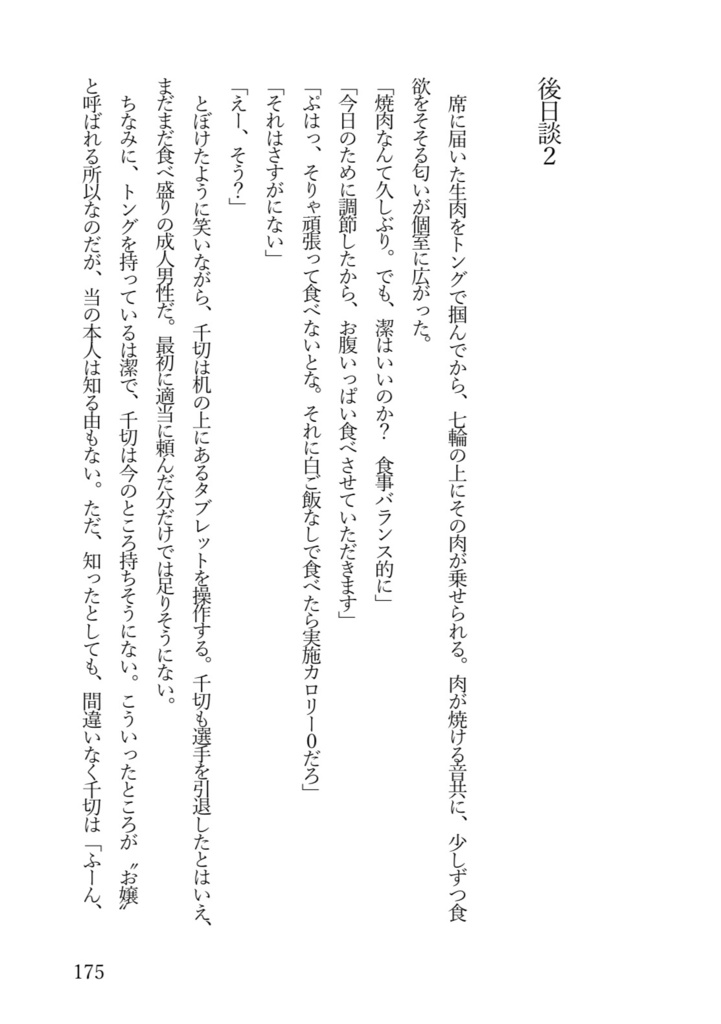 後日談２
席に届いた生肉をトングで掴んでから、七輪の上にその肉が乗せられる。肉が焼ける音共に、少しずつ食
欲をそそる匂いが個室に広がった。
「焼肉なんて久しぶり。でも、潔はいいのか？　食事バランス的に」
「今日のために調節したから、お腹いっぱい食べさせていただきます」
「ぷはっ、そりゃ頑張って食べないとな。それに白ご飯なしで食べたら実施カロリー０だろ」
「それはさすがにない」
「えー、そう？」
とぼけたように笑いながら、千切は机の上にあるタブレットを操作する。千切も選手を引退したとはいえ、
まだまだ食べ盛りの成人男性だ。最初に適当に頼んだ分だけでは足りそうにない。
ちなみに、トングを持っているは潔で、千切は今のところ持ちそうにない。こういったところが〝お嬢〟
と呼ばれる所以なのだが、当の本人は知る由もない。ただ、知ったとしても、間違いなく千切は「ふーん、
175